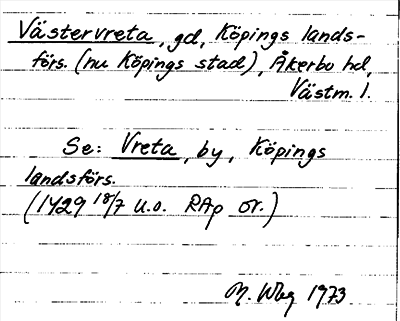 Västervreta, gd, Köpings lands-
förs. (nu Köpings stad), Åkerbo hd,
Västm. l.
Se: Vreta, by, Köpings
landsförs.
(1429 18/7 u.o. RAp or.)
M. Wbg 1973